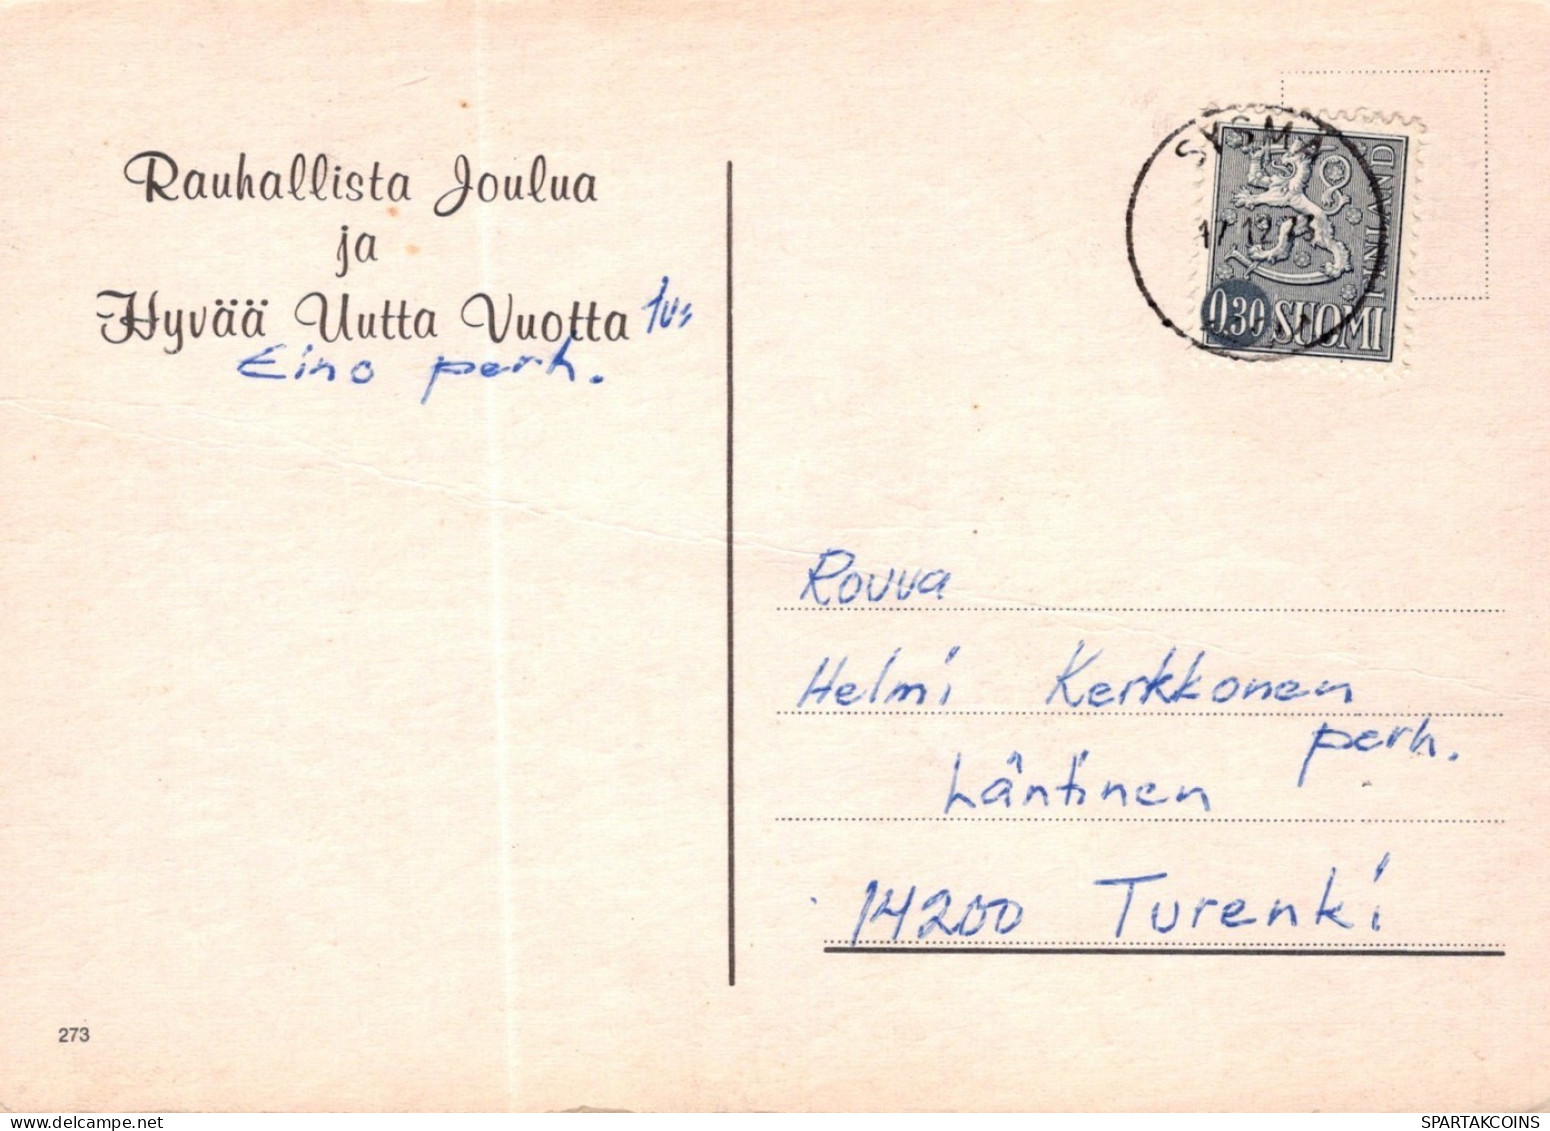 Rauhallista Joulua
ja
Hyvää Uutta Vuotta
Eino perh.
SYSMÄ
17.12.73
FINLAND
0.30 SUOMI
Rouva
Helmi Kerkkonen
perh.
Läntinen
14200 Turenki
273
SPARTAKCOINS